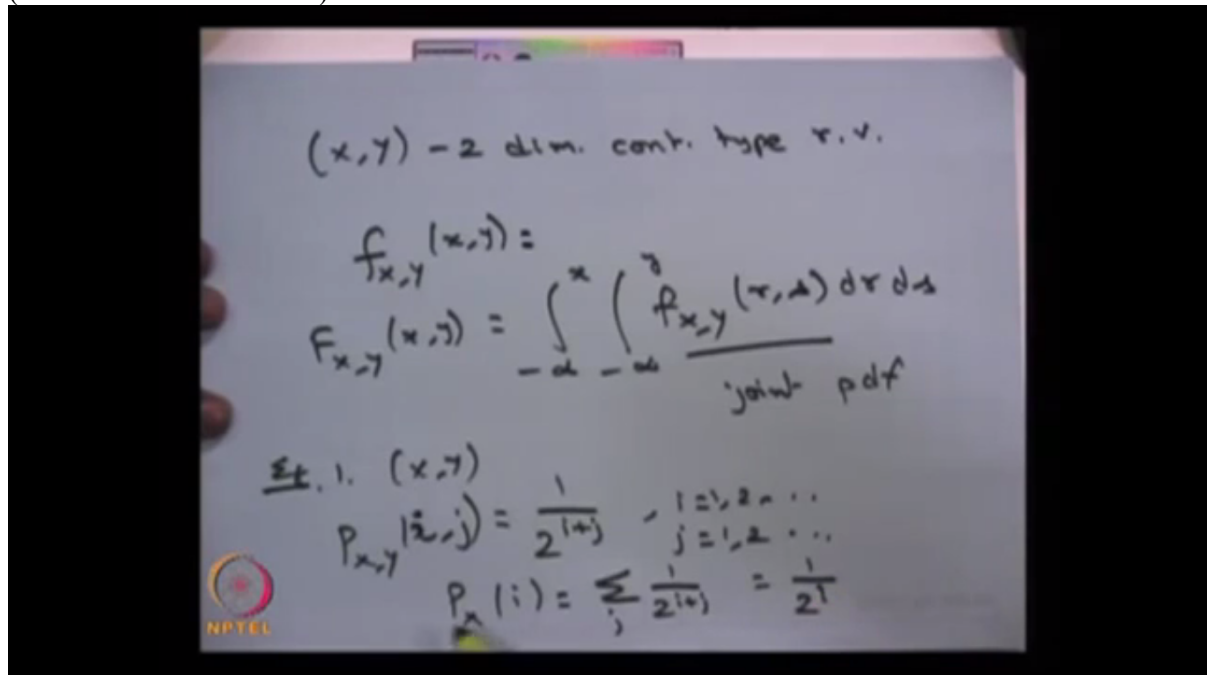 (X,Y) - 2 dim. cont. type r.v.
f_{X,Y}(x,y) =
F_{X,Y}(x,y) = ∫_{-∞}^{x} ∫_{-∞}^{y} f_{X,Y}(r,s) dr ds
joint pdf
Ex. 1. (X,Y)
P_{X,Y}(i,j) = 1/2^{i+j}, i=1,2...
j=1,2...
P_X(i) = Σ_j 1/2^{i+j} = 1/2^i
NPTEL